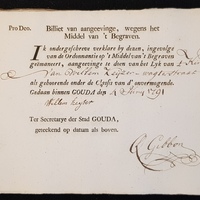 Pro Deo. Billiet van aangeevinge, wegens het
Middel van 't Begraven.
Ik ondergeschreve verklare by dezen, ingevolge
van de Ordonnantie op 't Middel van 't Begraven
geëmaneert, aangevinge te dien van het Lyk van
van Willem
als gehoorende onder de Classis van d' onvermogende.
Gedaan binnen GOUDA den 4 1791
Willem Keyser
Ter Secretarye der Stad GOUDA,
geteekend op datum als boven.